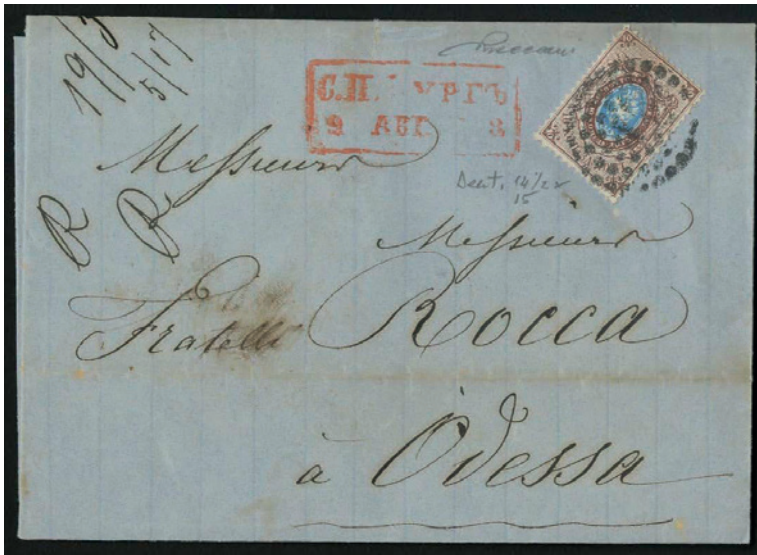 19/3
5/17
С.П. УРГЪ
9 АВГ 8
Messieurs
Dent. 14 1/2
15
R R
Messieurs
Fratelli Rocca
à Odessa